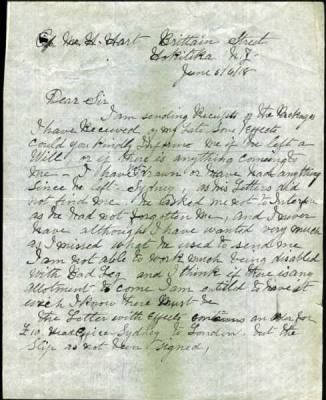 C/o Mr. H. Hart Brittain Street
Hokitika N.Z
June 6/6/18
Dear Sir
I am sending Receipts of the Packages
I have Received of my Late Sons Effects
Could you Kindly Inform me if he left a
Will, or if there is anything coming to
me - I have drawn or have had anything
Since he left Sydney, as his Letters did
not find me. He asked me not to Interfer
as he had not forgotten me, and I never
have although I have wanted very much
as I missed what he used to send me
I am not able to work much being disabled
with Bad Leg and I think if there is any
allotment to come I am entitld to have it
wich I know there must be
the Letter with Effects contains an Order for
£10, Sydney to London. but the
Slip as not been signed,